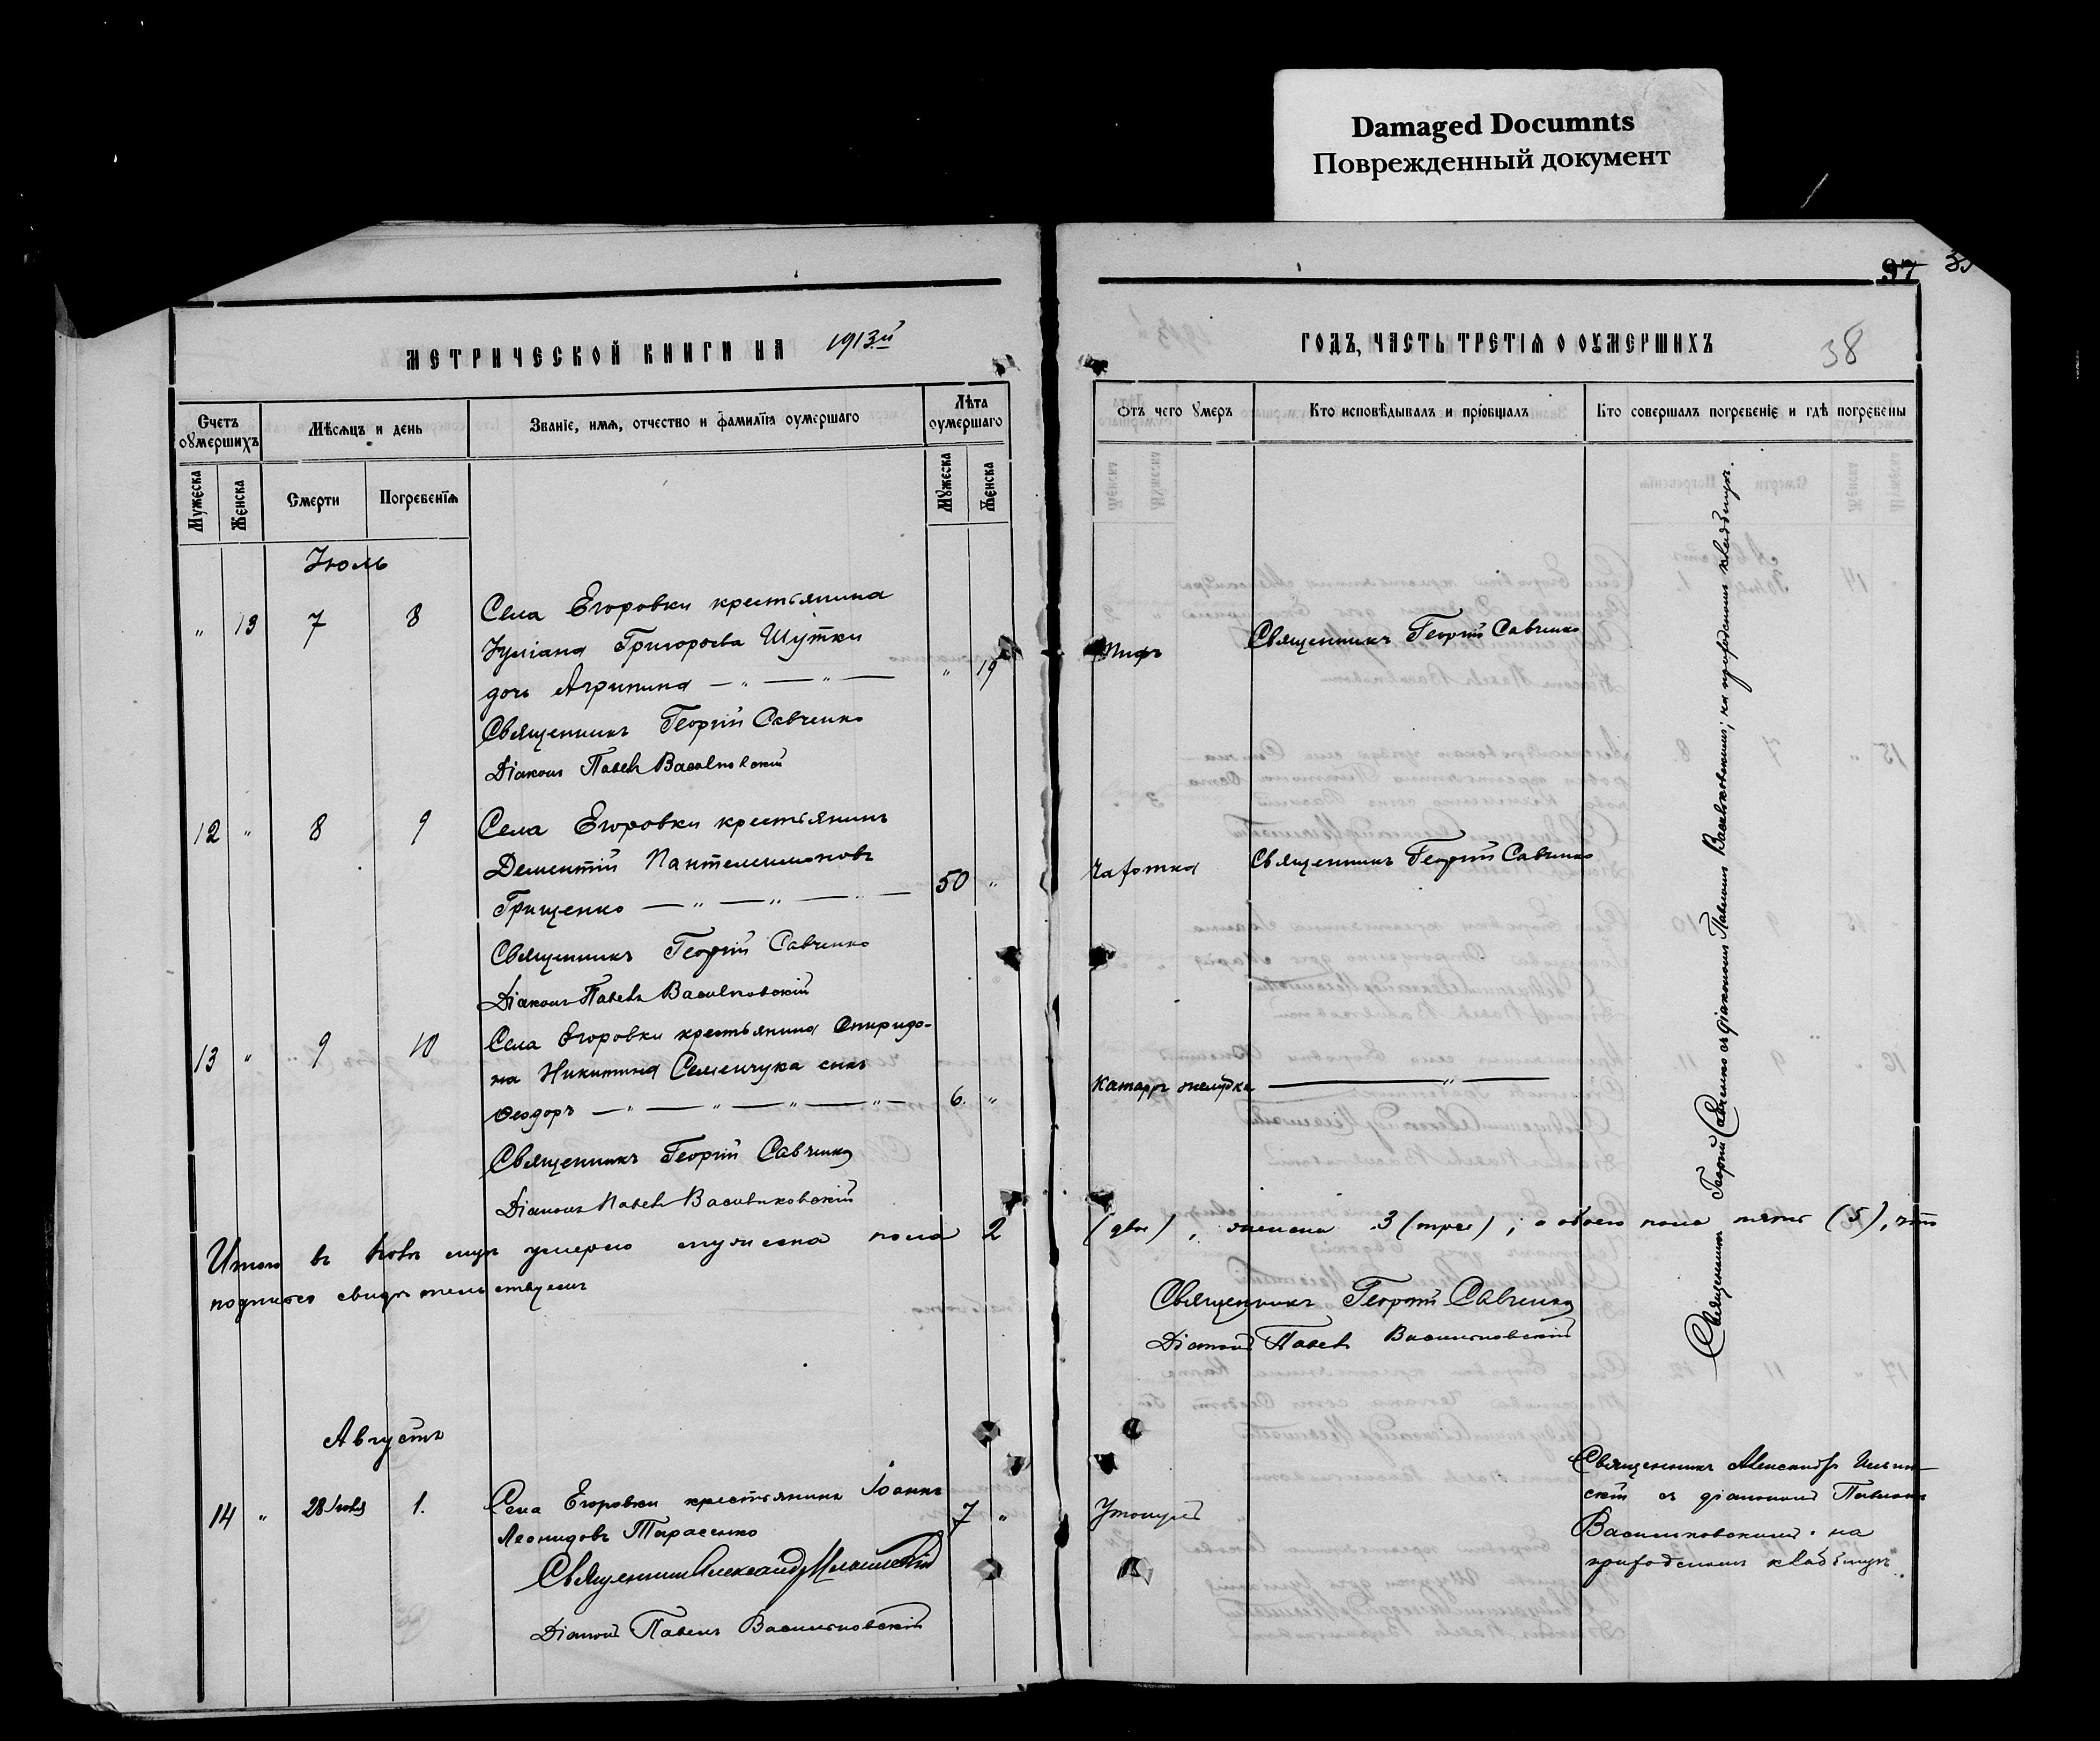 Damaged Documnts
Поврежденный документ
37
38
МЕТРИЧЕСКОЙ КНИГИ НА 1913й
ГОДЪ, ЧАСТЬ ТРЕТІѦ О ОУМЕРШИХЪ
Счетъ оумершихъ
Мѣсѧцъ и день
Званіе, имѧ, отчество и фамиліѧ оумершаго
Лѣта оумершаго
Мужеска
Женска
Смерти
Погребеніѧ
Мужеска
Женска
Отъ чего умеръ
Кто исповѣдывалъ и пріобщалъ
Кто совершалъ погребеніе и гдѣ погребены
Іюль
" 13 7 8
Села Егоровки крестьянина
Іуліана Григорьева Шутки
дочь Агрипина — " — " — " 19
Священникъ Георгій Савченко
Діаконъ Павелъ Васильковскій
Тифъ
Священникъ Георгій Савченко
12 " 8 9
Села Егоровки крестьянинъ
Дементій Пантелеимоновъ
Грищенко — " — " — " — 50 "
Священникъ Георгій Савченко
Діаконъ Павелъ Васильковскій
Чахотка
Священникъ Георгій Савченко
13 " 9 10
Села Егоровки крестьянина Спиридо-
на Никитина Семенчука сынъ
Ѳеодоръ — " — " — " — " — 6. "
Священникъ Георгій Савченко
Діаконъ Павелъ Васильковскій
Катарръ желудка
— " —
Священникъ Георгій Савченко съ діакономъ Павломъ Васильковскимъ; на приходскомъ кладбищѣ.
Итого въ іюлѣ умерло мужеска пола 2 (двое), женска 3 (трое); а обоего пола пять (5), что
подписью свидѣтельствуемъ
Священникъ Георгій Савченко
Діаконъ Павелъ Васильковскій
Августъ
14 " 28 Іюля 1.
Села Егоровки крестьянинъ Іоаннъ
Леонидовъ Тарасенко 7 "
Священникъ Александръ
Діаконъ Павелъ Васильковскій
Утонулъ
Священникъ Александръ
скій съ діакономъ Павломъ
Васильковскимъ на
приходскомъ кладбищѣ.